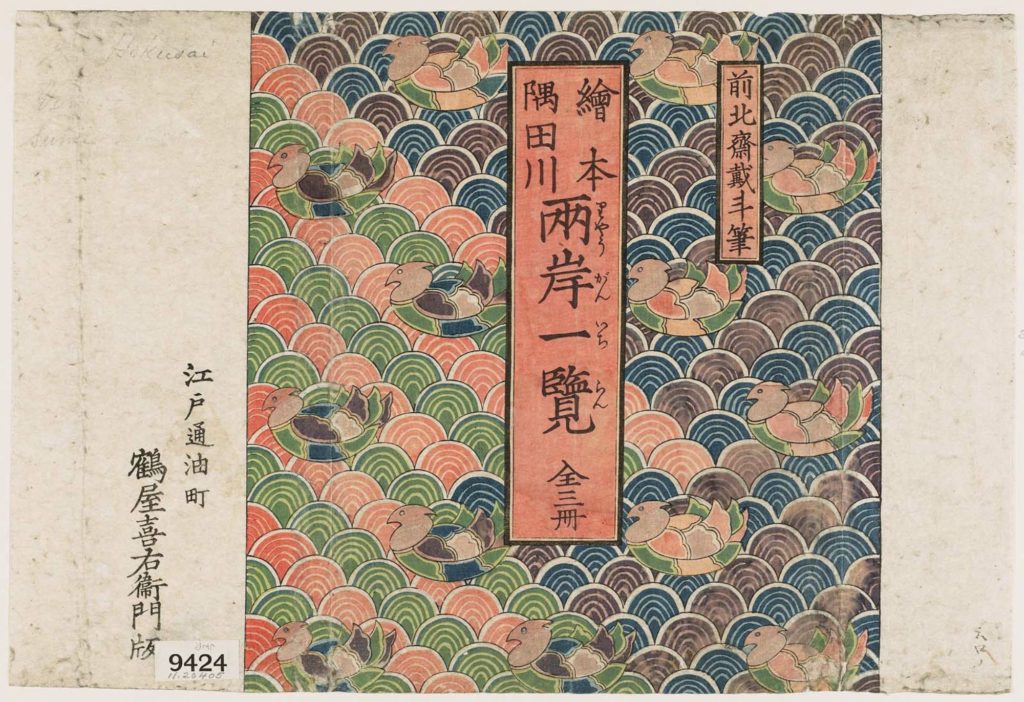 前北齋戴斗筆
繪本
隅田川
兩岸一覽
りやうがんいちらん
全三冊
江戸通油町
鶴屋喜右衞門版
Hokusai
9424
11.20400